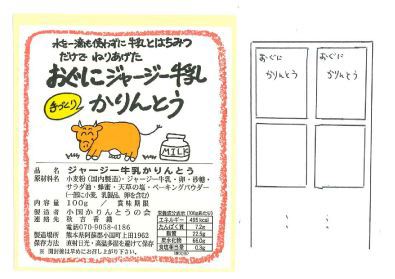 水を一滴も使わずに 牛乳とはちみつ
だけで ねりあげた
おぐにジャージー牛乳
手づくり かりんとう
MILK
品 名 ジャージー牛乳かりんとう
原材料名 小麦粉(国内製造)・ジャージー牛乳・卵・砂糖・
サラダ油・蜂蜜・天草の塩・ベーキングパウダー
(一部に小麦、乳製品、卵を含む)
内容量 100g / 賞味期限
製造者 小国かりんとうの会
連絡先 秋吉香織
電話070-9058-4186
製造場所 熊本県阿蘇郡小国町上田1962
保存方法 直射日光・高温多湿を避けて保存
※ 開封後は早めにお召し上がり下さい。
栄養成分表示(100gあたり)
エネルギー 495kcal
たんぱく質 7.2g
脂質 22.5g
炭水化物 66.0g
食塩相当量 0.3g
おぐに
かりんとう
おぐに
かりんとう